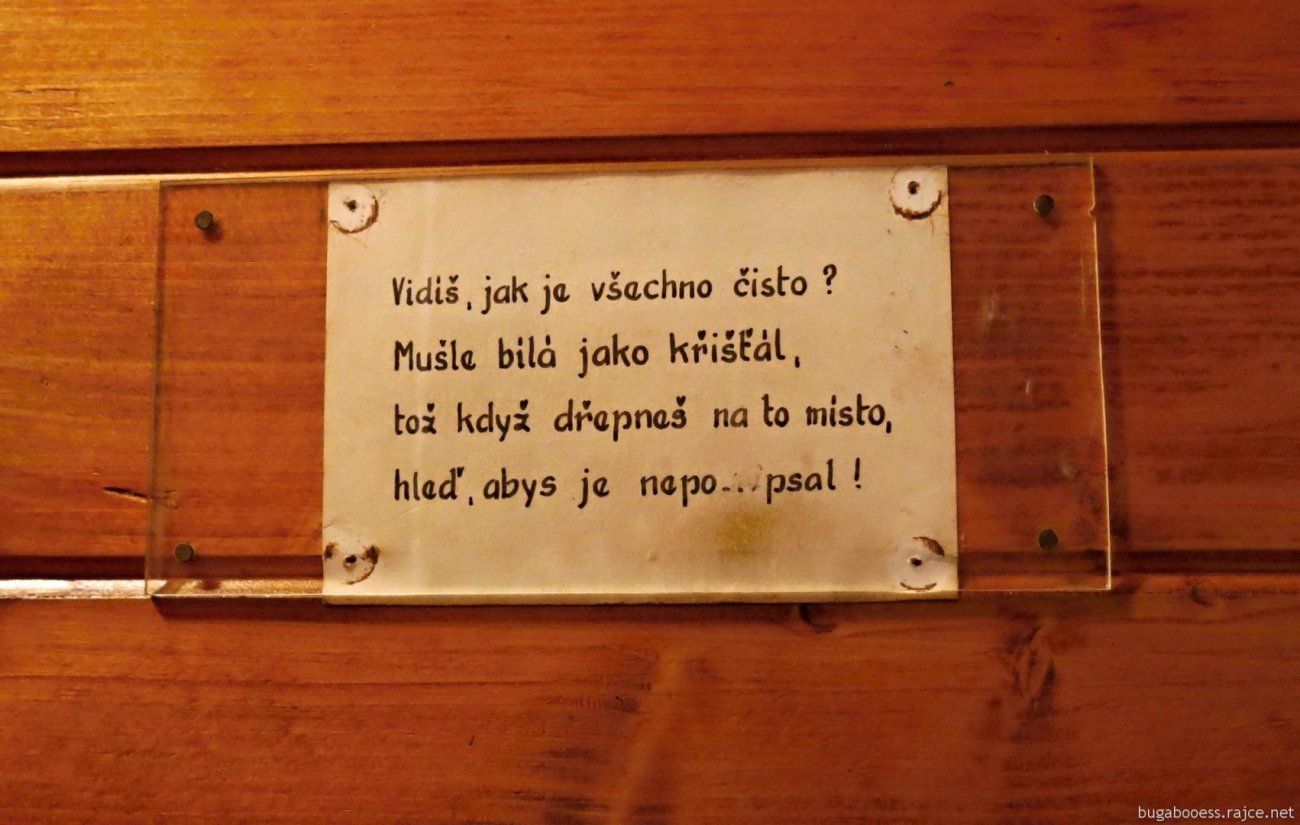 Vidiš, jak je všechno čisto ?
Mušle bílá jako křišťál,
tož když dřepneš na to místo,
hleď, abys je nepo...psal !
bugabooess.rajce.net